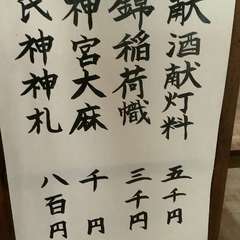 献酒献灯料 五千円
錦稲荷幟 三千円
神宮大麻 千円
神神札 八百円